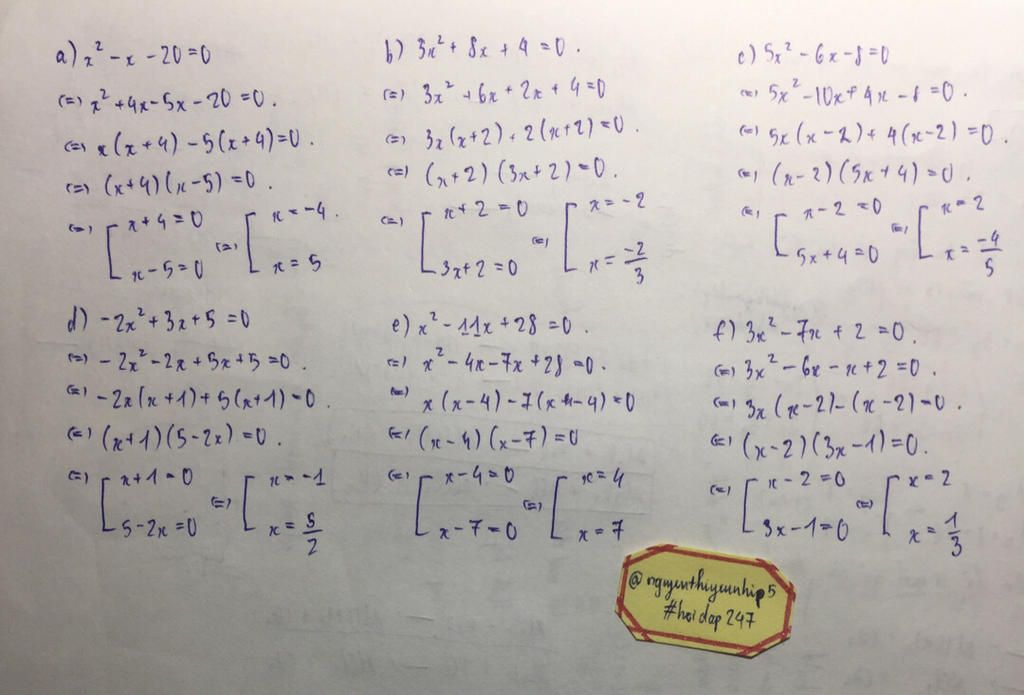 a) x² - x - 20 = 0
(=) x² + 4x - 5x - 20 = 0.
(=) x(x + 4) - 5(x + 4) = 0.
(=) (x + 4)(x - 5) = 0.
(=) [ x + 4 = 0 (=) [ x = -4.
x - 5 = 0 x = 5
b) 3x² + 8x + 4 = 0.
(=) 3x² + 6x + 2x + 4 = 0
(=) 3x(x + 2) + 2(x + 2) = 0.
(=) (x + 2)(3x + 2) = 0.
(=) [ x + 2 = 0 (=) [ x = -2
3x + 2 = 0 x = -2/3
c) 5x² - 6x - 8 = 0
(=) 5x² - 10x + 4x - 8 = 0.
(=) 5x(x - 2) + 4(x - 2) = 0.
(=) (x - 2)(5x + 4) = 0.
(=) [ x - 2 = 0 (=) [ x = 2
5x + 4 = 0 x = -4/5
d) -2x² + 3x + 5 = 0
(=) -2x² - 2x + 5x + 5 = 0.
(=) -2x(x + 1) + 5(x + 1) = 0.
(=) (x + 1)(5 - 2x) = 0.
(=) [ x + 1 = 0 (=) [ x = -1
5 - 2x = 0 x = 5/2
e) x² - 11x + 28 = 0.
(=) x² - 4x - 7x + 28 = 0.
(=) x(x - 4) - 7(x - 4) = 0
(=) (x - 4)(x - 7) = 0
(=) [ x - 4 = 0 (=) [ x = 4
x - 7 = 0 x = 7
f) 3x² - 7x + 2 = 0.
(=) 3x² - 6x - x + 2 = 0.
(=) 3x(x - 2) - (x - 2) = 0.
(=) (x - 2)(3x - 1) = 0.
(=) [ x - 2 = 0 (=) [ x = 2
3x - 1 = 0 x = 1/3
@nguyenthiyeunhip5
#hoidap247